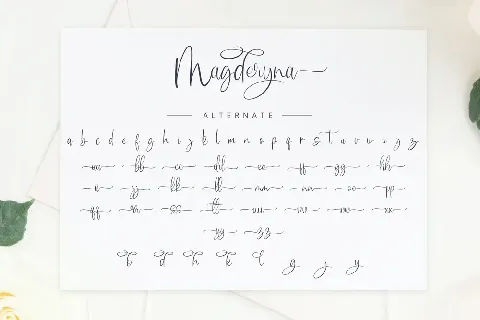 Magderyna
ALTERNATE
a b c d e f g h i j k l m n o p q r s t u v w x y z
aa bb cc dd ee ff gg hh
ii jj kk ll mm nn oo pp
ff rr ss tt uu vv ww xx
yy zz
b d h k l g j y